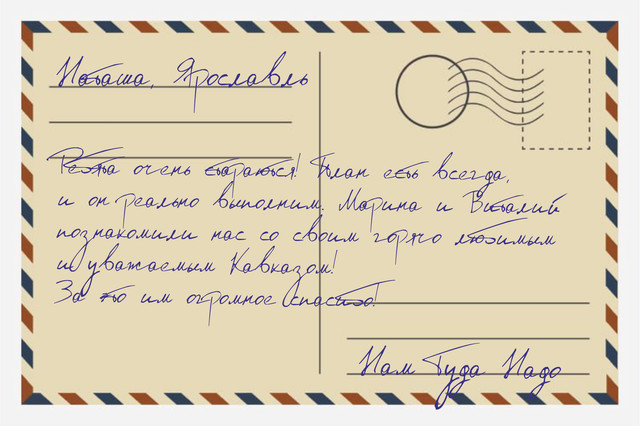 Наташа, Ярославль
Ребята очень стараются! План есть всегда,
и он реально выполним. Марина и Виталий
познакомили нас со своим горячо любимым
и уважаемым Кавказом!
За это им огромное спасибо!
Нам Туда Надо